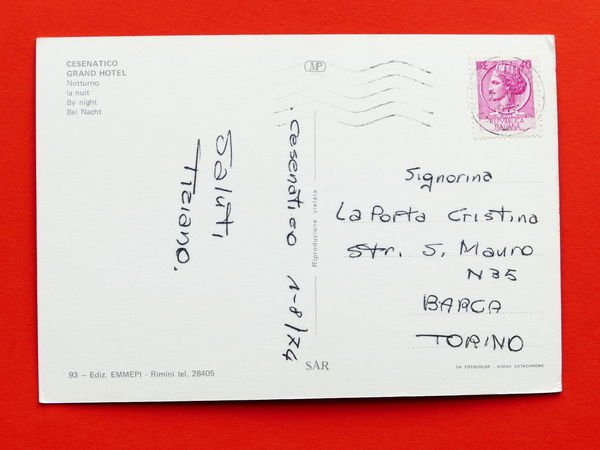 CESENATICO
GRAND HOTEL
Notturno
la nuit
By night
Bei Nacht
MP
LIRE 40
REPUBBLICA
ITALIANA
Saluti
Tiziano.
Cesenatico 1-8/74
Riproduzione vietata
Signorina
La Porta Cristina
Str. S. Mauro
N 35
BARCA
TORINO
93 — Ediz. EMMEPI - Rimini tel. 28405
SAR
DA FOTOCOLOR - KODAK EKTACHROME